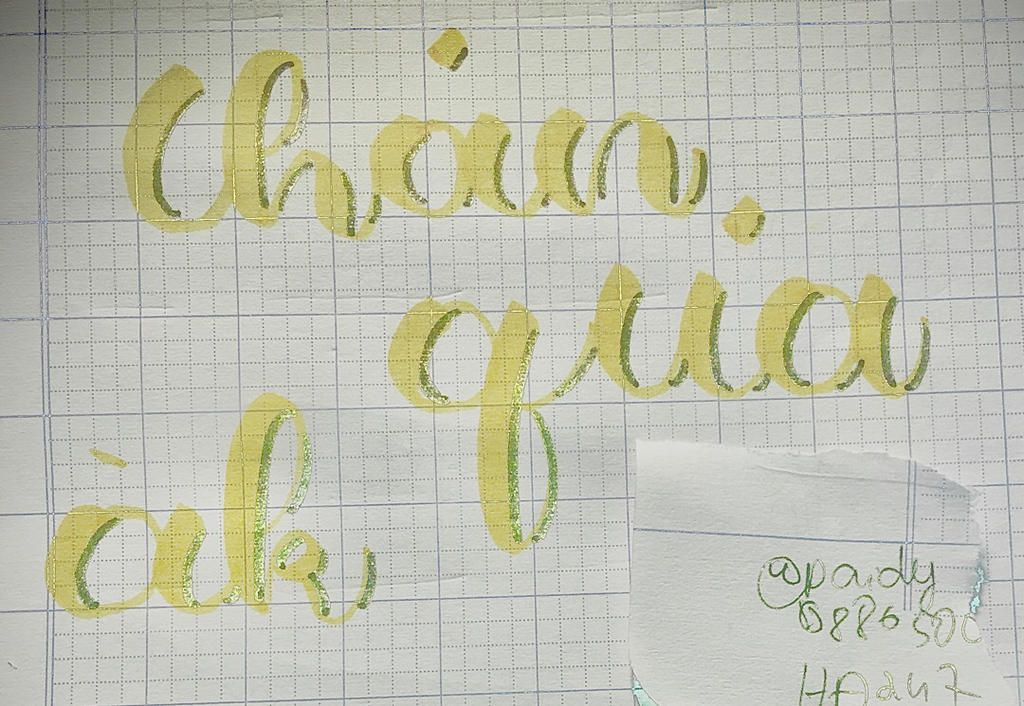 chán
quá
àk
@paidy
0886500
HAd47